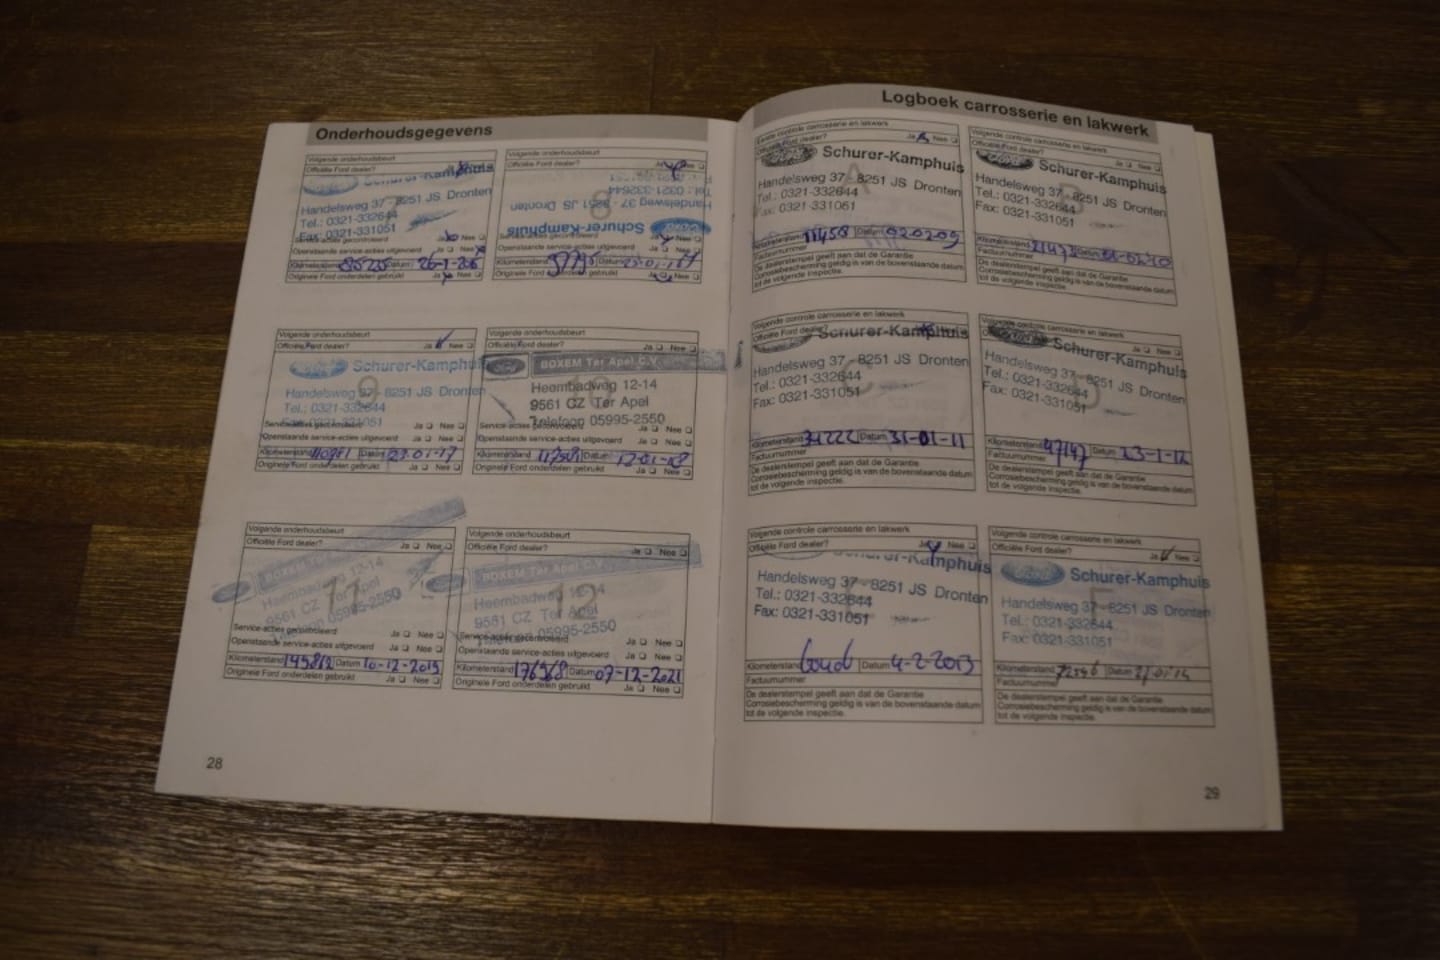 Onderhoudsgegevens
Volgende onderhoudsbeurt
Officiële Ford dealer? Ja Nee
Schurer-Kamphuis
Handelsweg 37 - 8251 JS Dronten
Tel.: 0321-332644
Fax: 0321-331051
Service-acties gecontroleerd Ja Nee
Openstaande service-acties uitgevoerd Ja Nee
Kilometerstand Datum
Originele Ford onderdelen gebruikt Ja Nee
Volgende onderhoudsbeurt
Officiële Ford dealer? Ja Nee
8
Tel.: 0321-332644
Handelsweg 37 - 8251 JS Dronten
Schurer-Kamphuis
Openstaande service-acties uitgevoerd Ja Nee
Kilometerstand Datum
Originele Ford onderdelen gebruikt Ja Nee
Volgende onderhoudsbeurt
Officiële Ford dealer? Ja Nee
Ford Schurer-Kamphuis
9
Handelsweg 37 - 8251 JS Dronten
Tel.: 0321-332644
Fax: 0321-331051
Service-acties gecontroleerd Ja Nee
Openstaande service-acties uitgevoerd Ja Nee
Kilometerstand Datum
Originele Ford onderdelen gebruikt Ja Nee
Volgende onderhoudsbeurt
Officiële Ford dealer? Ja Nee
Ford BOXEM Ter Apel C.V.
Heembadweg 12-14
9561 CZ Ter Apel
Telefoon 05995-2550
Service-acties gecontroleerd Ja Nee
Openstaande service-acties uitgevoerd Ja Nee
Kilometerstand Datum 12-01-18
Originele Ford onderdelen gebruikt Ja Nee
Volgende onderhoudsbeurt
Officiële Ford dealer? Ja Nee
Ford BOXEM Ter Apel C.V.
11
Heembadweg 12-14
9561 CZ Ter Apel
Telefoon 05995-2550
Service-acties gecontroleerd Ja Nee
Openstaande service-acties uitgevoerd Ja Nee
Kilometerstand Datum 10-12-2019
Originele Ford onderdelen gebruikt Ja Nee
Volgende onderhoudsbeurt
Officiële Ford dealer? Ja Nee
Ford BOXEM Ter Apel C.V.
12
Heembadweg 12-14
9561 CZ Ter Apel
Telefoon 05995-2550
Service-acties gecontroleerd Ja Nee
Openstaande service-acties uitgevoerd Ja Nee
Kilometerstand 176968 Datum 07-12-2021
Originele Ford onderdelen gebruikt Ja Nee
28
Logboek carrosserie en lakwerk
Eerste controle carrosserie en lakwerk
Officiële Ford dealer? Ja Nee
Ford Schurer-Kamphuis
A
Handelsweg 37 - 8251 JS Dronten
Tel.: 0321-332644
Fax: 0321-331051
Kilometerstand 11458 Datum 020209
Factuurnummer
De dealerstempel geeft aan dat de Garantie
Corrosiebescherming geldig is van de bovenstaande datum
tot de volgende inspectie.
Volgende controle carrosserie en lakwerk
Officiële Ford dealer? Ja Nee
Ford Schurer-Kamphuis
B
Handelsweg 37 - 8251 JS Dronten
Tel.: 0321-332644
Fax: 0321-331051
Kilometerstand Datum
Factuurnummer
De dealerstempel geeft aan dat de Garantie
Corrosiebescherming geldig is van de bovenstaande datum
tot de volgende inspectie.
Volgende controle carrosserie en lakwerk
Officiële Ford dealer? Ja Nee
Schurer-Kamphuis
C
Handelsweg 37 - 8251 JS Dronten
Tel.: 0321-332644
Fax: 0321-331051
Kilometerstand 34222 Datum 31-01-11
Factuurnummer
De dealerstempel geeft aan dat de Garantie
Corrosiebescherming geldig is van de bovenstaande datum
tot de volgende inspectie.
Volgende controle carrosserie en lakwerk
Officiële Ford dealer? Ja Nee
Schurer-Kamphuis
D
Handelsweg 37 - 8251 JS Dronten
Tel.: 0321-332644
Fax: 0321-331051
Kilometerstand 47147 Datum 23-1-12
Factuurnummer
De dealerstempel geeft aan dat de Garantie
Corrosiebescherming geldig is van de bovenstaande datum
tot de volgende inspectie.
Volgende controle carrosserie en lakwerk
Officiële Ford dealer? Ja Nee
Schurer-Kamphuis
Handelsweg 37 - 8251 JS Dronten
Tel.: 0321-332644
Fax: 0321-331051
Kilometerstand Datum 4-2-2013
Factuurnummer
De dealerstempel geeft aan dat de Garantie
Corrosiebescherming geldig is van de bovenstaande datum
tot de volgende inspectie.
Volgende controle carrosserie en lakwerk
Officiële Ford dealer? Ja Nee
Ford Schurer-Kamphuis
F
Handelsweg 37 - 8251 JS Dronten
Tel.: 0321-332644
Fax: 0321-331051
Kilometerstand Datum
Factuurnummer
De dealerstempel geeft aan dat de Garantie
Corrosiebescherming geldig is van de bovenstaande datum
tot de volgende inspectie.
29